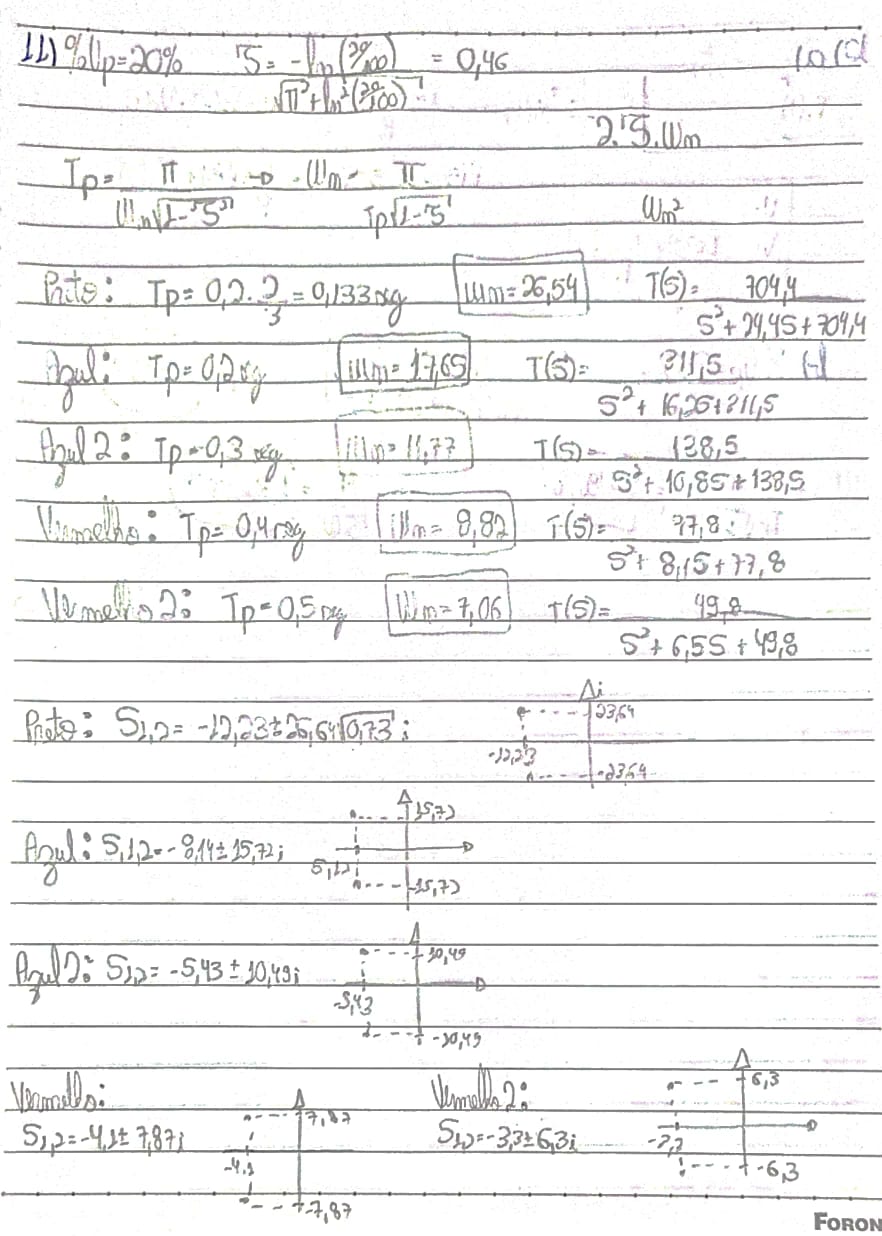 11) %Up=20% ζ = -ln(20/100) / √(π²+ln²(20/100)) = 0,46
2.ζ.Wn
Tp = π / (Wn√(1-ζ²)) → Wn = π / (Tp√(1-ζ²))
Wn²
Preto: Tp = 0,2.2/3 = 0,133 seg Wn = 26,54 T(S) = 704,4 / (S²+24,4S+704,4)
Azul: Tp = 0,2 seg Wn = 17,65 T(S) = 311,5 / (S²+16,2S+311,5)
Azul 2: Tp = 0,3 seg Wn = 11,77 T(S) = 138,5 / (S²+10,8S+138,5)
Vermelho: Tp = 0,4 seg Wn = 8,82 T(S) = 77,8 / (S²+8,1S+77,8)
Vermelho 2: Tp = 0,5 seg Wn = 7,06 T(S) = 49,8 / (S²+6,5S+49,8)
i
Preto: S1,2 = -12,23 ± 26,64√0,73 i
23,64
-12,23
-23,64
Azul: S1,2 = -8,14 ± 15,72i
15,72
-15,72
Azul 2: S1,2 = -5,43 ± 10,49i
10,49
-5,43
-10,49
Vermelho:
S1,2 = -4,1 ± 7,87i
7,87
-4,1
-7,87
Vermelho 2:
S1,2 = -3,3 ± 6,3i
6,3
-6,3
FORON